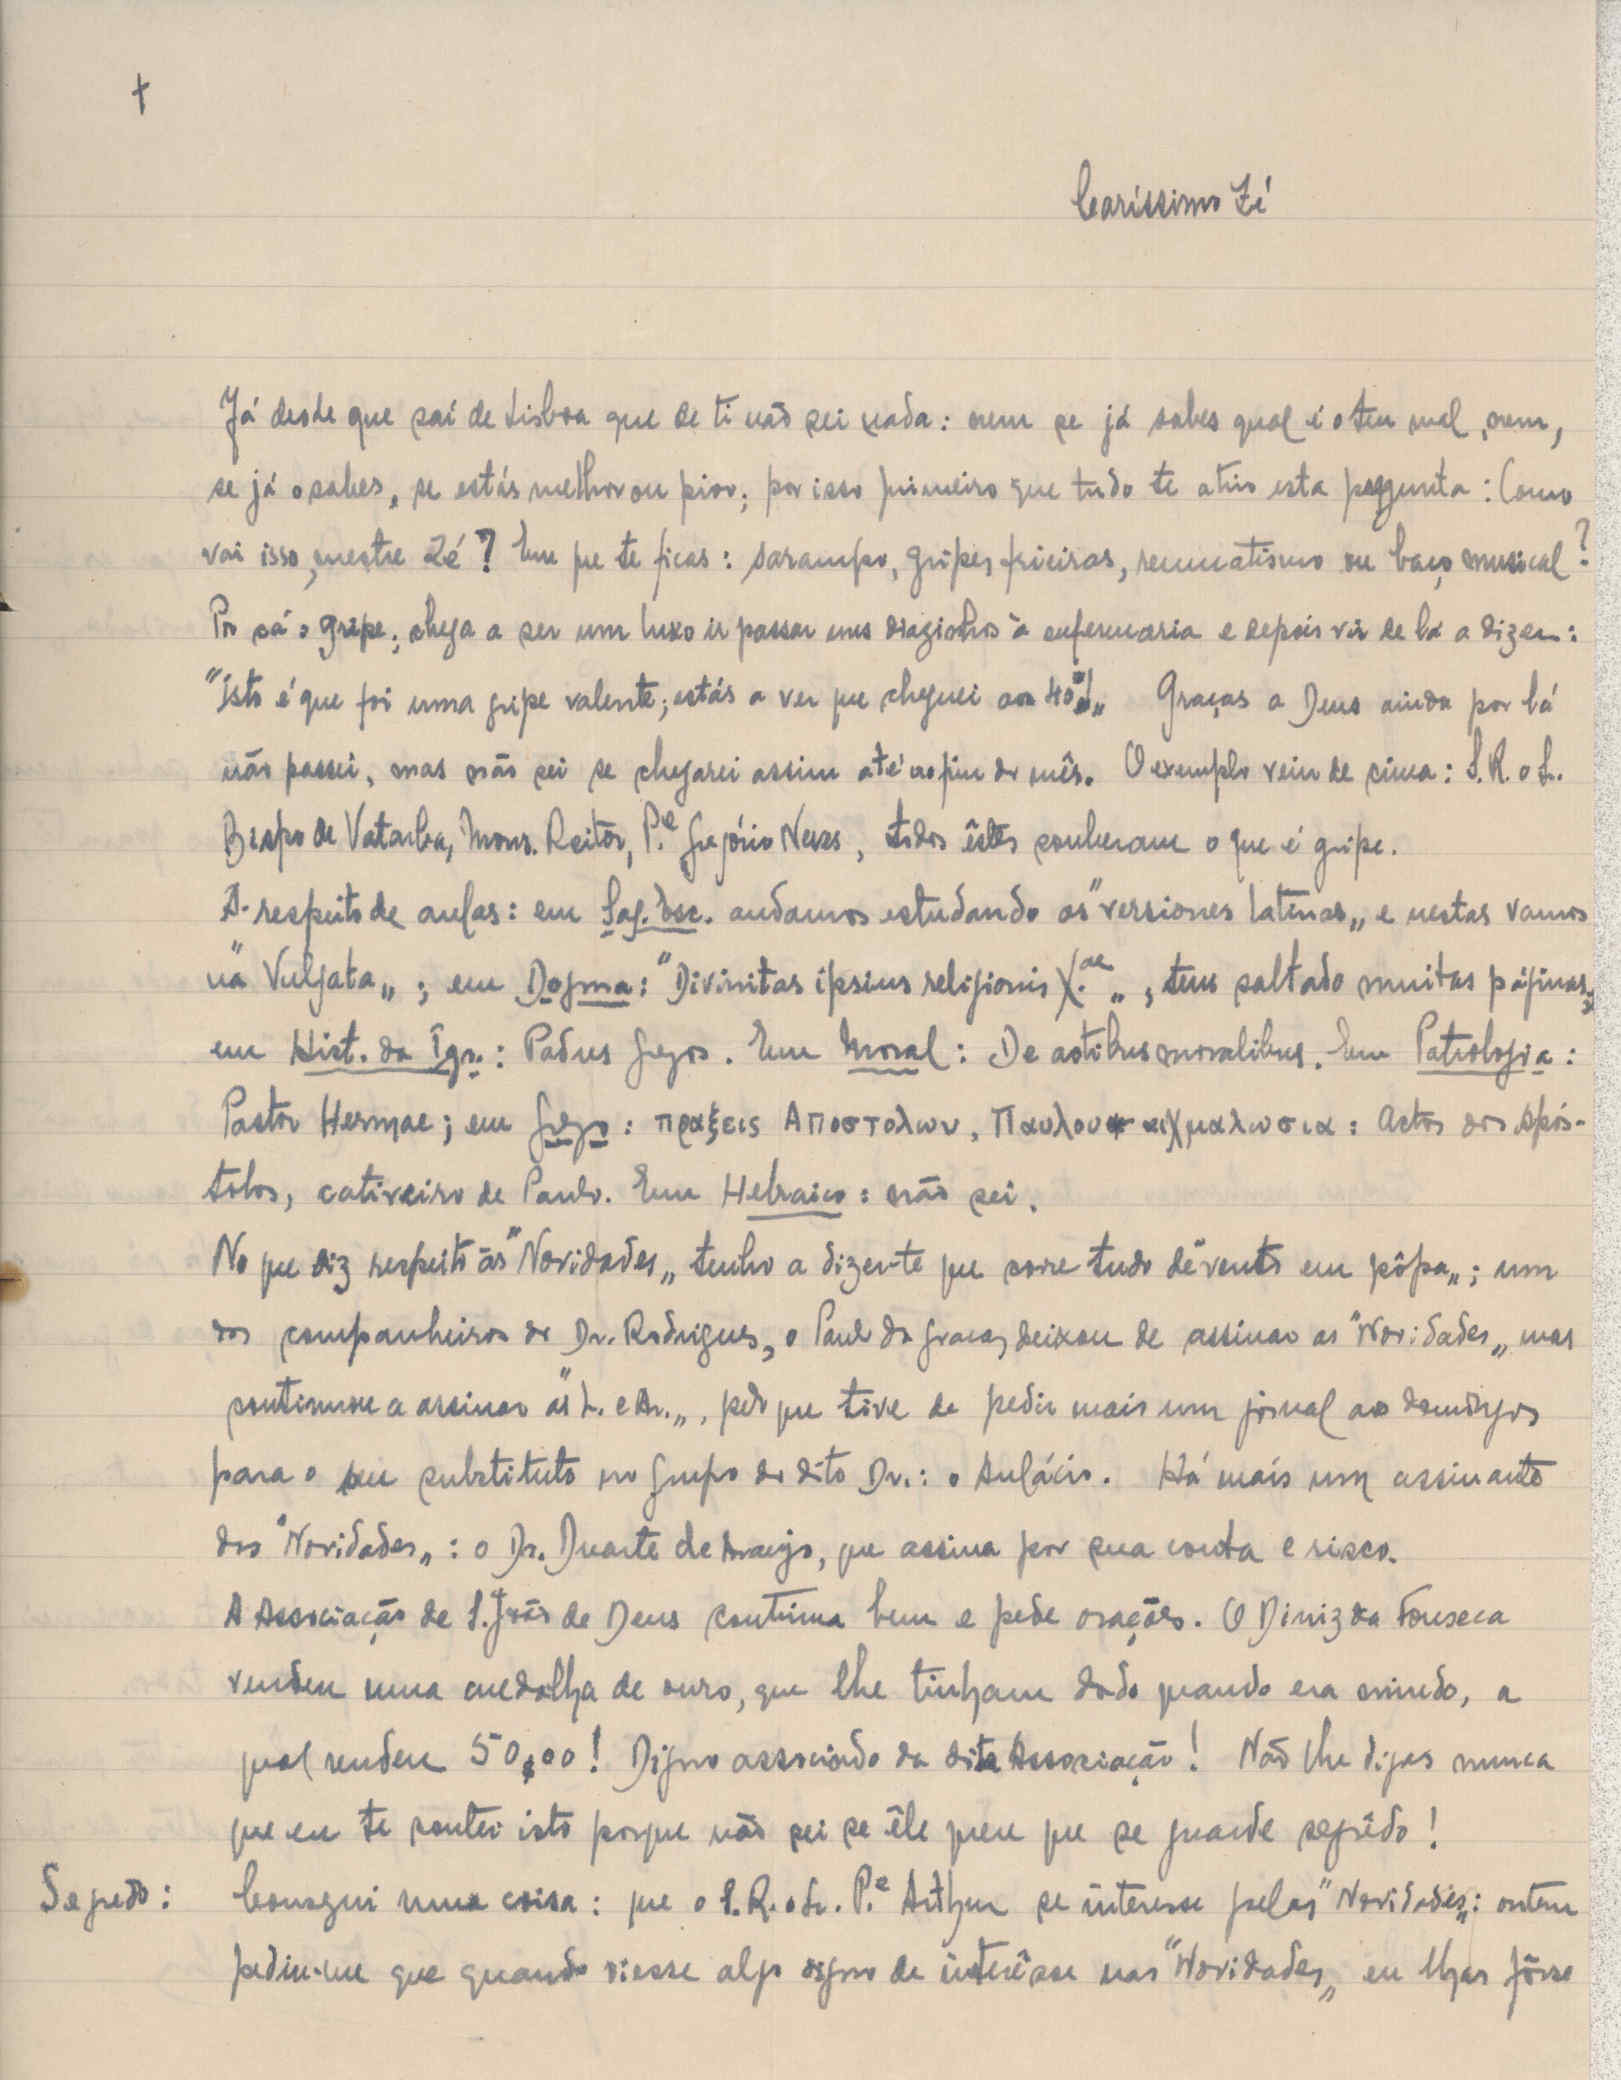 †
Caríssimo Zé
Já desde que saí de Lisboa que de ti não sei nada: nem se já sabes qual é o teu mal, nem,
se já o sabes, se estás melhor ou pior; por isso primeiro que tudo te atiro esta pergunta: Como
vai isso, mestre Zé? Em que te ficas: sarampo, gripes, frieiras, reumatismo ou baço musical?
Por cá o gripe; chega a ser um luxo ir passar uns diazinhos à enfermaria e depois vir de lá a dizer:
"Isto é que foi uma gripe valente; estás a ver que cheguei aos 40°!„ Graças a Deus ainda por lá
não passei, mas não sei se chegarei assim até ao fim do mês. O exemplo veio de cima: S. R. o S.
Bispo de Vatarba, Mons. Reitor, P.e Gregório Neves, todos êstes souberam o que é gripe.
A respeito de aulas: em Sag. Esc. andamos estudando as "versiones latinas„ e nestas vamos
na "Vulgata„; em Dogma: "Divinitas ipsius religionis X.ae„, tem saltado muitas páginas;
em Hist. da Igr.: Padres Gregos. Em Moral: De actibus moralibus. Em Patrologia:
Pastor Hermae; em Grego: πραξεις Αποστολων, Παυλου αιχμαλωσια: Actos dos Após-
tolos, cativeiro de Paulo. Em Hebraico: não sei.
No que diz respeito às "Novidades„ tenho a dizer-te que corre tudo de "vento em pôpa„; um
dos companheiros do Dr. Rodrigues, o Paulo da Graça, deixou de assinar as "Novidades„ mas
continuou a assinar as "L. e Ar.„, pelo que tive de pedir mais um jornal aos domingos
para o seu substituto no grupo do dito Dr.: o Aulácio. Há mais um assinante
das "Novidades„: o Dr. Duarte de Araujo, que assina por sua conta e risco.
A Associação de S. João de Deus continua bem e pede orações. O Diniz da Fonseca
vendeu uma medalha de ouro, que lhe tinham dado quando era miudo, a
qual rendeu 50$00! Digno associado da dita Associação! Não lhe digas nunca
que eu te contei isto porque não sei se êle quer que se guarde segrêdo!
Segredo: Consegui uma coisa: que o S. R. o Sr. P.e Arthur se interesse pelas "Novidades„: ontem
pediu-me que quando viesse algo digno de interêsse nas "Novidades„ eu lhas fôsse